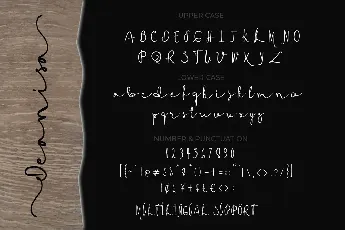 Deamisa
UPPER CASE
A B C D E F G H I J K L M N O
P Q R S T U V W X Y Z
LOWER CASE
a b c d e f g h i j k l m n o
p q r s t u v w x y z
NUMBER & PUNCTUATION
1 2 3 4 5 6 7 8 9 0
MULTILINGUAL SUPPORT